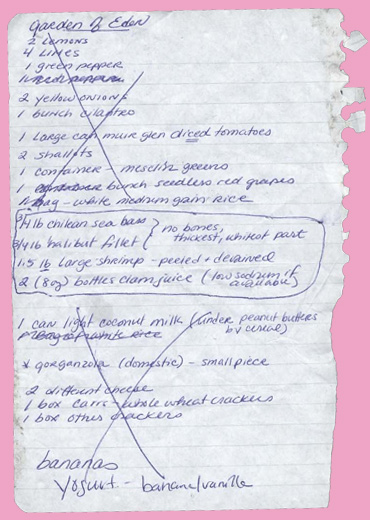 Garden of Eden
2 Lemons
4 Limes
1 green pepper
1 red pepper
2 yellow onions
1 bunch cilantro
1 Large can muir glen diced tomatoes
2 shallots
1 container - mesclin greens
1 bunch seedless red grapes
1 bag - white medium gain rice
3/4 lb chilean sea bass } no bones,
3/4 lb halibut fillet } thickest, whitest part
1.5 lb Large shrimp - peeled + deveined
2 (8oz) bottles clam juice (low sodium if
available)
1 can light coconut milk (under peanut butters
by cereal)
* gorganzola (domestic) - small piece
2 different cheese
1 box Carrs - whole wheat crackers
1 box other crackers
bananas
Yogurt - banana/vanilla